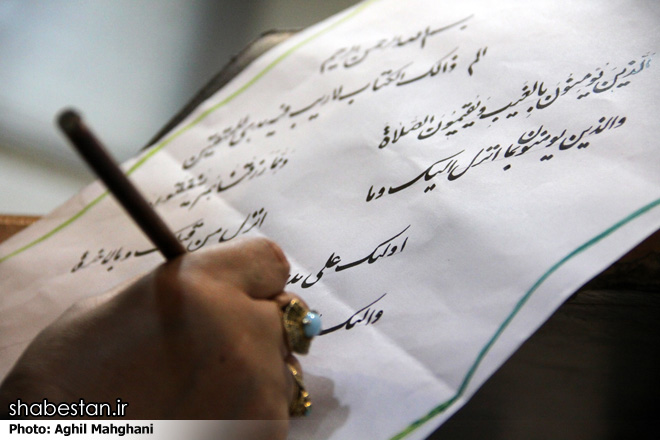 بسم الله الرحمن الرحیم
الم ذالک الکتاب لاریب فیه هدی للمتقین
الّذین یَومنون بالغیب و یُقیمون الصّلاة
والذین یومنون بما انزل الیک وما
انزل من قبلک و بالاخرة
اولئک علی
shabestan.ir
Photo: Aghil Mahghani